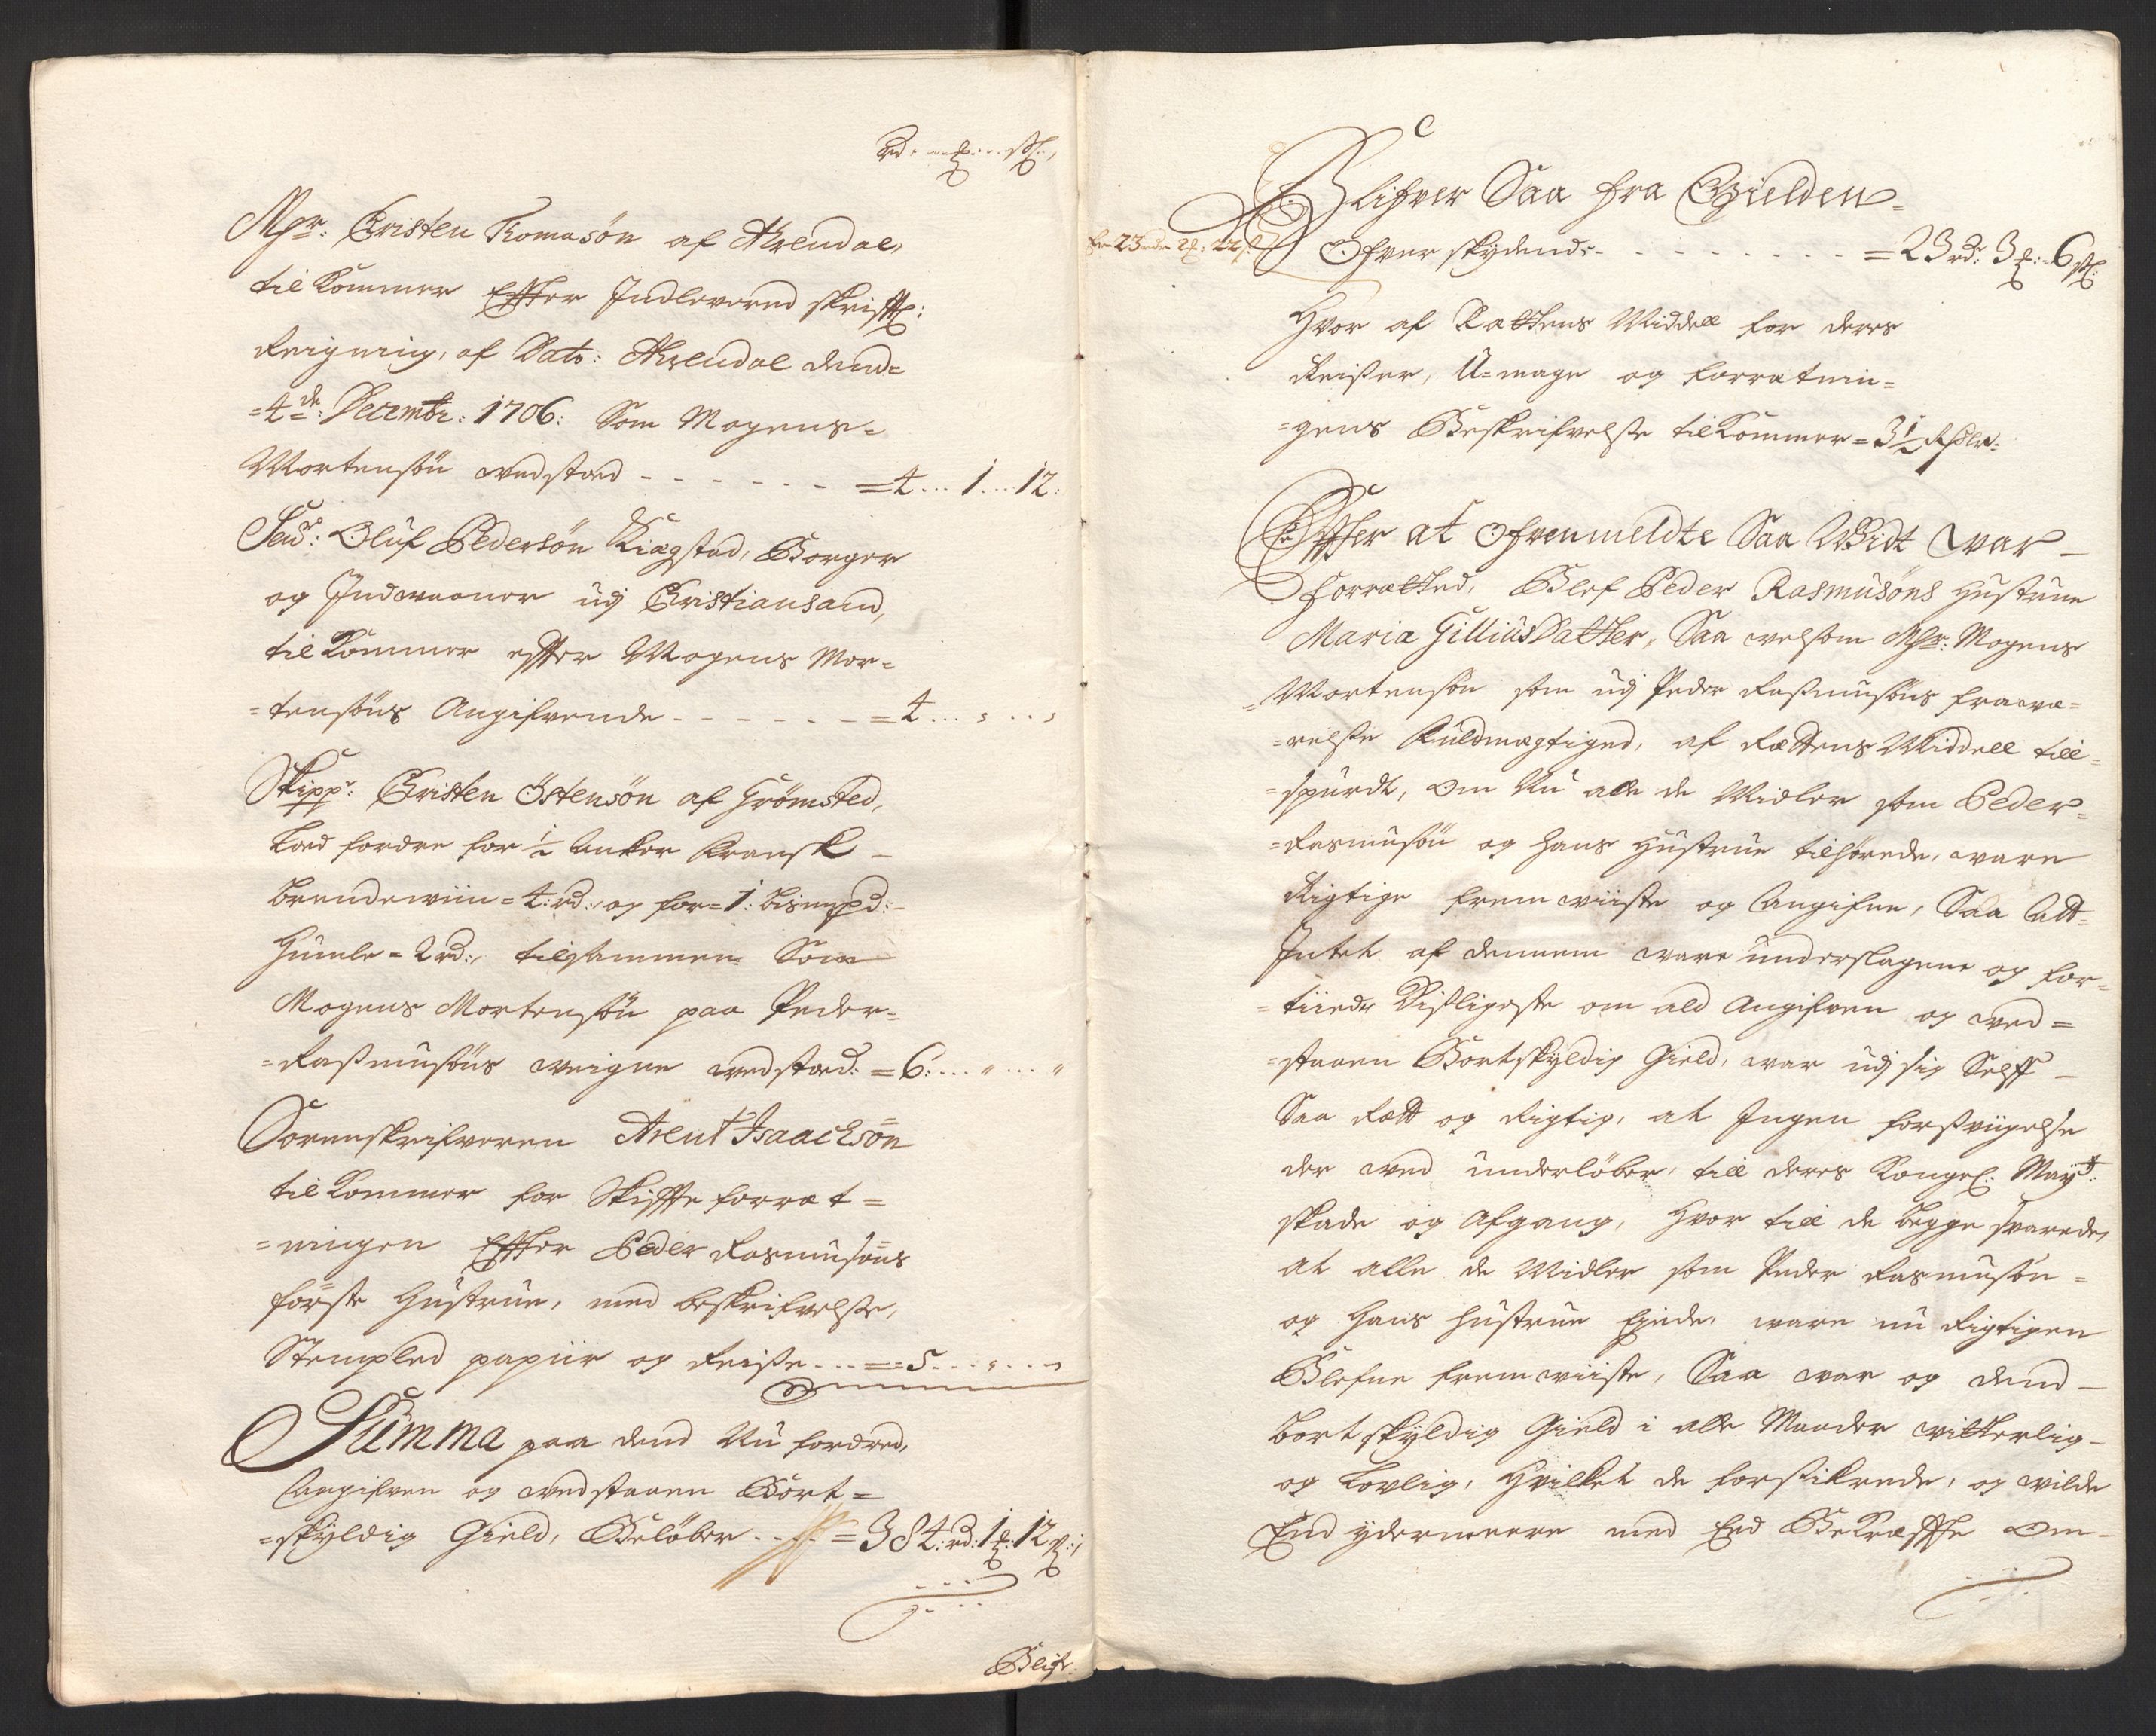 Rd. ... ..., ß:
Msr: Christen Tomasön af Arendal,
tilkommer Effter Indlevered skrifftl:
Reigning, af Dato: Arendal dend=
=4de: Decembr: 1706: Som Mogens=
Mortensön vedstoed - - - - - - =4 ... 1 ... 12:
Seur: Oluf Pedersön Kiægstad, Borger
og Indvaaner udj Christiansand,
tilkommer effter Mogens Mor=
=tensöns Angifvende - - - - - - =4 ... " ... "
Skippr: Christen Östensön af Grömsted,
Loed fordre for ½ Anker Fransk
Brendeviin = 4: rd:, og for = 1: bismpd:
Humle = 2 rd:, tilsammen Som
Mogens Mortensön paa Peder=
=Rasmusöns veigne vedstoed: =6: ... " ... "
Sorenskrifveren Arent Isaachsön
tilkommer for Skiffte forret=
=ningen Effter Peder Rasmusöns
förste Hustrue, med beskrifvelse,
Stempled papiir og Reise ... =5 ... " ... "
Summa paa dend Nu fordred,
Angifven og vedstaaen Bort=
=skyldig Gield, Belöber - - =384: rd: 1 : 12 ß:
Blifr.
Blifver Saa fra Gielden=
Ofverskydende - - - - - - - - =23 rd: 3 : 6 ß:
Hvor af Rettens Middel for deres
Reiser, U=mage og forretnin=
=gens Beskrifvelse tilkommer = 3½ Rixdlr:
Effter at Ofvenmeldte Saa Vidt var
Forretted, Blef Peder Rasmusöns Hustrue
Maria GilliusDatter, Saa velsom Msr: Mogens
Mortensön som udj Peder Rasmusöns fravæ=
=relse Fuldmegtiged, af Rettens Middell till=
=spurdt, om Nu alle de Midler som Peder=
=Rasmusön og hans Hustrue tilhörede, vare
Rigtige fremviiste og Angifne, Saa Att=
Intet af dennem vare underslagene og for=
=tiiede Disligeste om ald Angifven og ved=
=staaen Bortskyldig Gield, var udj sig Self
Saa Rett og Rigtig, at Ingen forsviigelse
der ved underlöber, till deres Kongel: Mayts:
skade og Afgang, Hvor till de begge svarede,
at alle de Midler som Peder Rasmusön=
og Hans Hustrue Eyede, vare nu Rigtigen
Blefne fremviiste, Saa var og dend
bortskyldig Gield i alle Maader vitterlig
og Lovlig, Hvilket de forsikrede, og vilde
End ydermeere med Eed Bekreffte Om